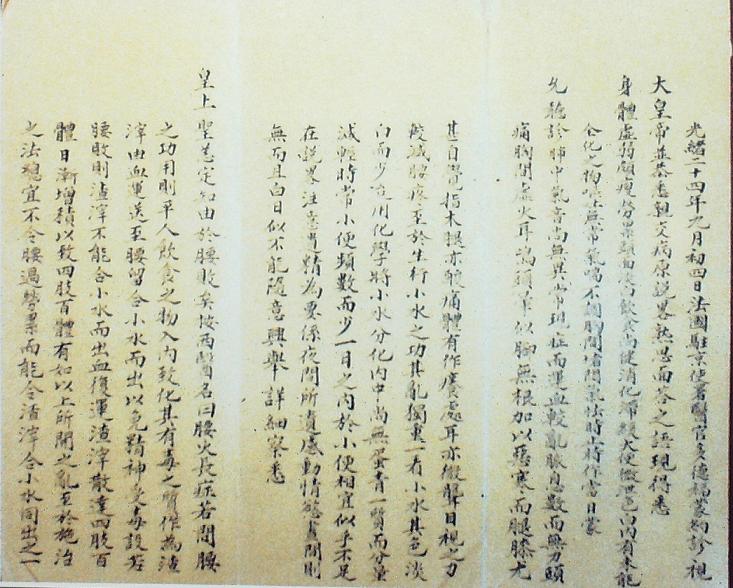 光緒二十四年九月初四日法國駐京使署醫官多德福蒙約診視
大皇帝並恭悉親交病原說畧熟思面答之語現得悉
身體虛弱頗瘦勞累頭面淡白飲食尚健消化滯緩大便微泄色白內有未能
化之物嘔無常氣喘不調胸間堵悶氣怯時止時作當日蒙
允聽診肺中氣音尚無異常現症而運血較亂脈息數而無力頭
痛胸間虛火耳鳴頭暈似腳無根加以惡寒而腿膝尤
甚自覺指木腿亦酸痛體有作癢處耳亦微聾目視之力
較減腰疼至於生行小水之功其亂獨重一看小水其色淡
白而少迨用化學將小水分化內中尚無蛋青一質而分量
減輕時常小便頻數而少一日之內於小便相宜似乎不足
在說畧注意遺精為要係夜間所遺感動情慾晝間則
無而且白日似不能隨意興舉詳細察悉
皇上聖恙定知由於腰敗矣按西醫名曰腰火長症若問腰
之功用則平人飲食之物入內致化其有毒之質作為渣
滓由血運送至腰留合小水而出以免精神受毒設若
腰敗則渣滓不能合小水而出血復運渣滓散達四肢百
體日漸增積以致四肢百體有如以上所開之亂至於施治
之法總宜不令腰過勞累而能令渣滓合小水同出之一